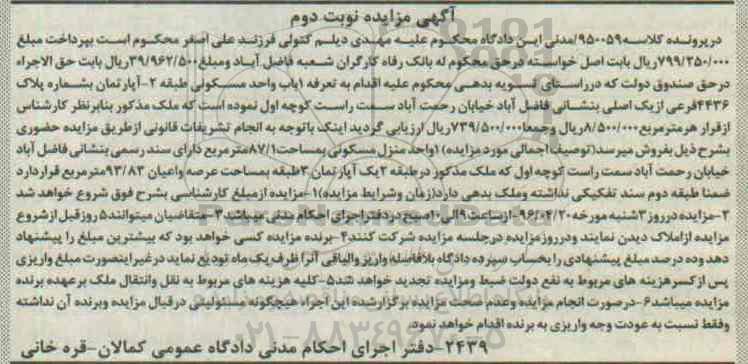 آگهی مزایده نوبت دوم
درپرونده کلاسه ۹۵۰۰۵۹/مدنی ایـن دادگاه محکـوم علیـه مهـدی دیلـم کتولی فرزنـد علـی اصغر محکـوم اسـت بپرداخت مبلغ
۷۹۹/۲۵۰/۰۰۰ریال بابت اصل خواسـته درحق محکوم له بانک رفاه کارگران شـعبه فاضل آبـاد ومبلغ۳۹/۹۶۲/۵۰۰ریال بابت حق الاجراء
درحق صندوق دولت که درراسـتای تسـویه بدهـی محکوم علیه اقدام به تعرفه ۱باب واحد مسـکونی طبقه ۲-آپارتمان بشـماره پلاک
۴۴۳۶فرعی ازیک اصلی بنشـانی فاضل آباد خیابان رحمت آباد سـمت راسـت کوچه اول نموده است که ملک مذکور بنابرنظر کارشناس
ازقرار هرمترمربع ۸/۵۰۰/۰۰۰ریال وجمعا۷۳۹/۵۰۰/۰۰۰ریال ارزیابی گردید اینک باتوجه به انجام تشریفات قانونی ازطریق مزایده حضوری
بشرح ذیل بفروش میرسد(توصیف اجمالی مورد مزایده) ۱واحد منزل مسکونی بمساحت۸۷/۱مترمربع دارای سند رسمی بنشانی فاضل آباد
خیابان رحمت آباد سمت راست کوچه اول که ملک مذکور درطبقه ۲یک آپارتمان ۳طبقه بمساحت عرصه واعیان ۹۳/۸۳مترمربع قراردارد
ضمنا طبقه دوم سند تفکیکی نداشته وملک بدهی دارد(زمان وشرایط مزایده)۱-مزایده ازمبلغ کارشناسی بشرح فوق شروع خواهد شد
۲-مزایده درروز ۳شنبه مورخه ۹۶/۰۴/۲۰-ازساعت ۹الی۱۰صبح دردفتراجرای احکام مدنی میباشد۳-متقاضیان میتوانند۵ روزقبل ازشروع
مزایده ازاملاک دیدن نمایند ودرروزمزایده درجلسه مزایده شرکت کنند۴-برنده مزایده کسی خواهد بود که بیشترین مبلغ را پیشنهاد
دهد وده درصد مبلغ پیشنهادی را بحساب سپرده دادگاه بلافاصله واریز والباقی آنرا ظرف یک ماه تودیع نماید درغیراینصورت مبلغ واریزی
پس ازکسرهزینه های مربوط به نفع دولت ضبط ومزایده تجدید خواهد شد۵-کلیه هزینه های مربوط به نقل وانتقال ملک برعهده برنده
مزایده میباشد۶-درصورت انجام مزایده وعدم صحت مزایده برگزارشده این اجراء هیچگونه مسئولیتی درقبال مزایده وبرنده آن نداشته
وفقط نسبت به عودت وجه واریزی به برنده اقدام خواهد نمود.
۲۴۳۹-دفتر اجرای احکام مدنی دادگاه عمومی کمالان-قره خانی
۰۲۱-۸۸۳۴۹۶